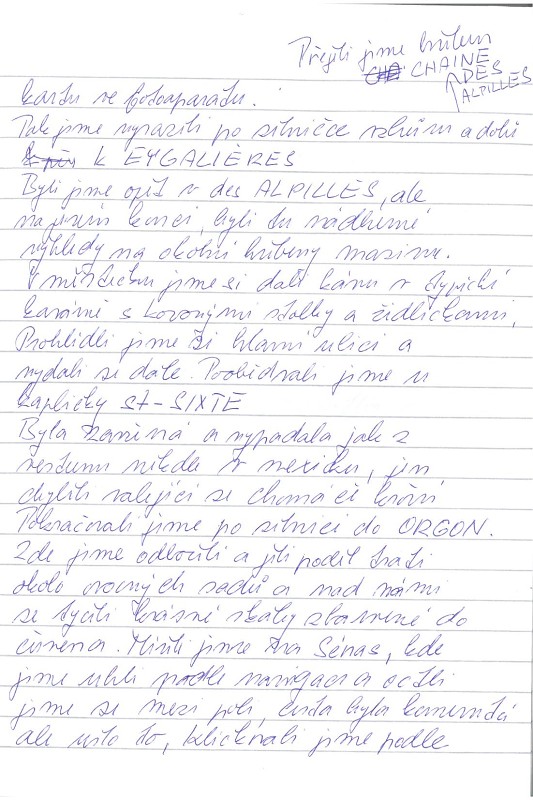 Přejeli jsme hřeben
CHAINE
DES
ALPILLES
kartu ve fotoaparátu.
Tak jsme vyrazili po silničce vzhůru a dolů
k EYGALIÈRES
Byli jsme opět v des ALPILLES, ale
na jiném konci, byli tu nádherné
výhledy na okolní hřebeny masivu.
V městečku jsme si dali kávu v typické
kavárně s kovovými stolky a židličkami,
Prohlídli jsme si hlavní ulici a
vydali se dále. Poobědvali jsme u
kapličky ST-SIXTE
Byla zavřená a vypadala jak z
westernu někde v mexiku, jen
chyběli valející se chomáče křoví
Pokračovali jsme po silnici do ORGON.
Zde jsme odbočili a jeli podél trati
okolo ovocných sadů a nad námi
se tyčili krásné skály zbarvené do
červena. Minuli jsme Sénas, kde
jsme uhli podle navigace a ocitli
jsme se mezi poli, cesta byla kamenitá
ale ušlo to, kličkovali jsme podle